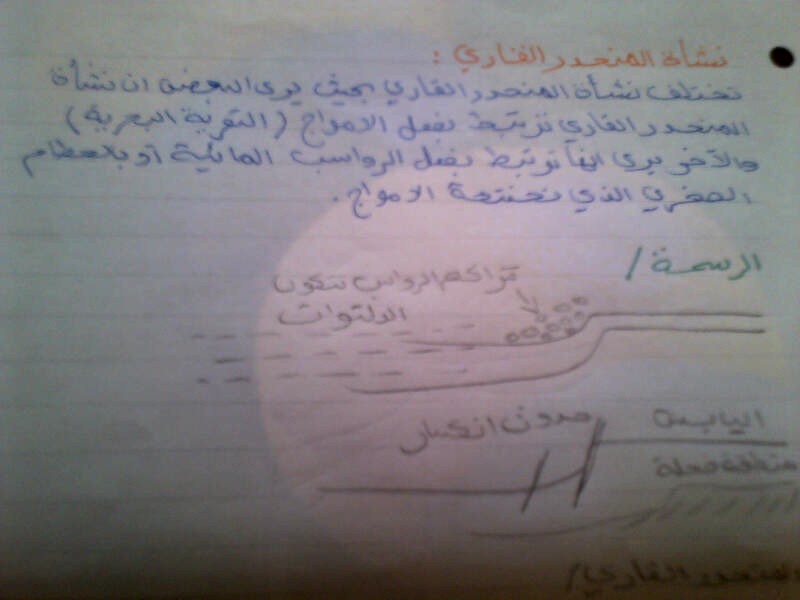 نشأة المنحدر القاري :
تختلف نشأة المنحدر القاري بحيث يرى البعض ان نشأة
المنحدر القاري ترتبط بفعل الامواج ( التعرية البحرية )
والآخر يرى انها ترتبط بفعل الرواسب المائية أو بالحطام
الصخري الذي الامواج .
الرسمة /
تراكم الرواسب تتكون
الدلتوات
اليابس
حدوث انكسار
منطقة
المنحدر القاري /